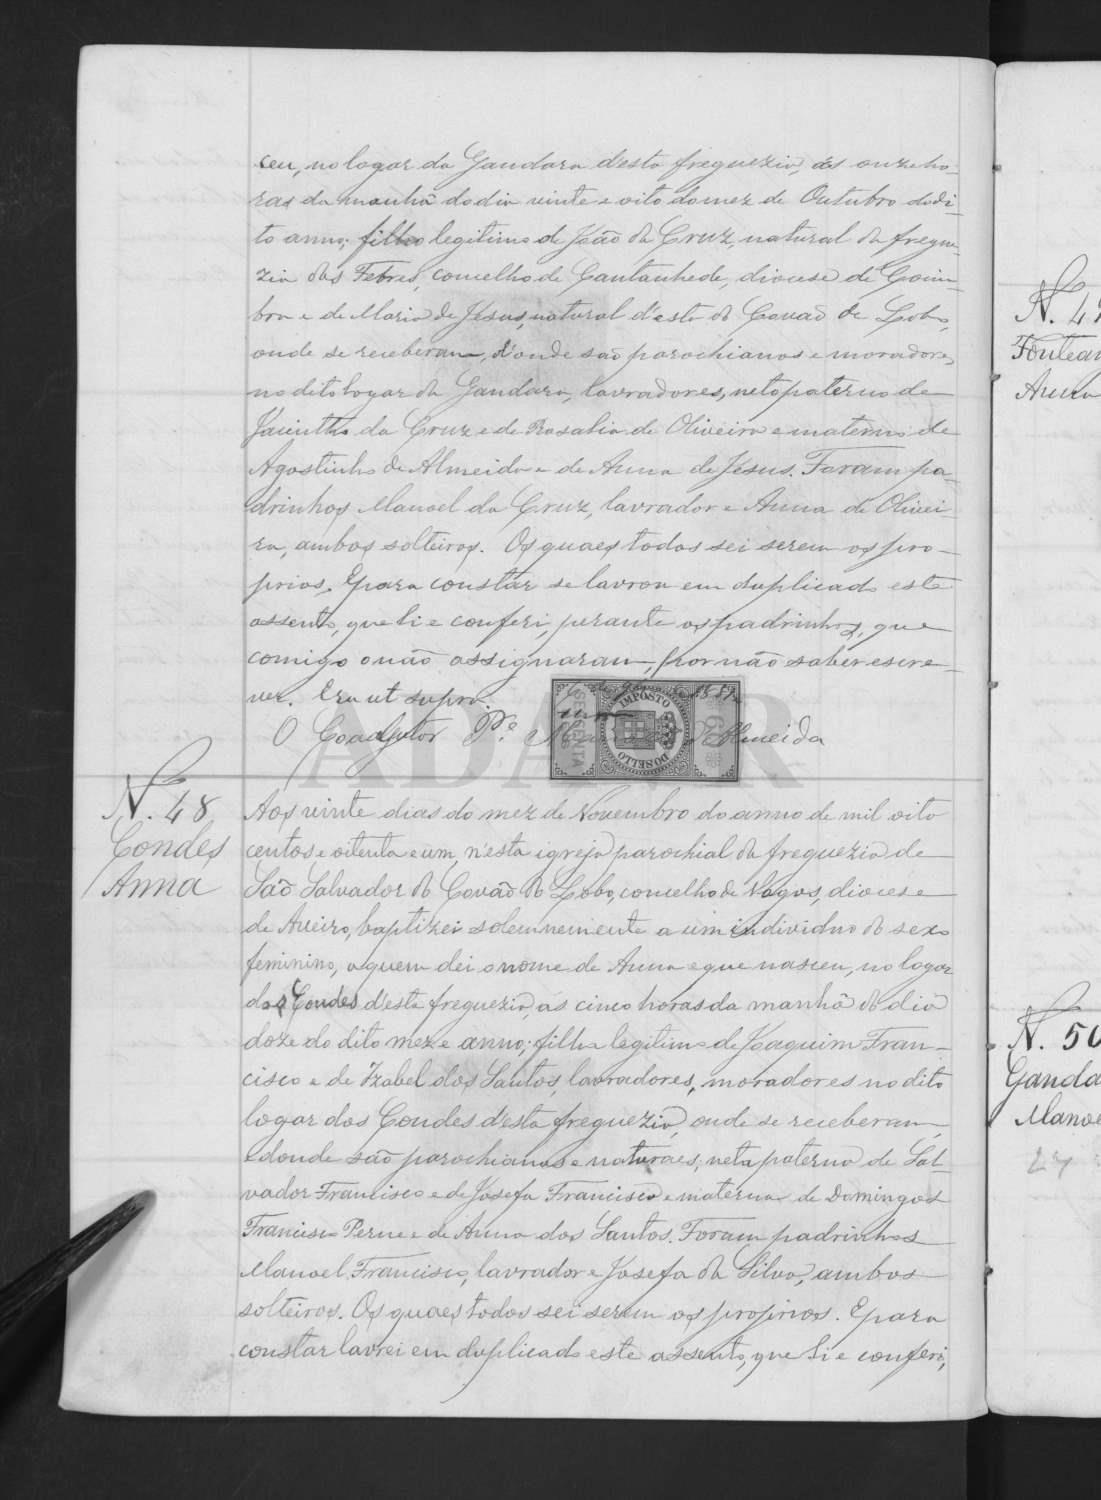 ceu, no logar da Gandara d'esta freguezia, ás onze ho-
ras da manhã do dia vinte e oito do mez de Outubro do di-
to anno; filho legitimo de João da Cruz, natural da fregue-
zia das Febres, concelho de Cantanhede, diocese de Coim-
bra e de Maria de Jesus, natural d'esta do Covão do Lobo,
onde se receberam, d'onde são parochianos e moradores,
no dito logar da Gandara, lavradores, neto paterno de
Jacintho da Cruz e de Rosalia de Oliveira e materno de
Agostinho de Almeida e de Anna de Jesus. Foram pa-
drinhos Manoel da Cruz, lavrador e Anna de Olivei-
ra, ambos solteiros. Os quaes todos sei serem os pro-
prios. E para constar se lavrou em duplicado este
assento, que li e conferi, perante os padrinhos, que
comigo o não assignaram, por não saber escre-
ver. Era ut supra.
O Coadjutor P.e d'Almeida
IMPOSTO
DO SELLO
SESSENTA
60
ADAVR
N. 48
Condes
Anna
Aos vinte dias do mez de Novembro do anno de mil oito
centos e oitenta e um, n'esta igreja parochial da freguezia de
São Salvador do Covão do Lobo, concelho de Vagos, diocese
de Aveiro, baptizei solemnemente a um individuo do sexo
feminino, a quem dei o nome de Anna e que nasceu, no logar
dos Condes d'esta freguezia, ás cinco horas da manhã do dia
doze do dito mez e anno; filha legitima de Joaquim Fran-
cisco e de Izabel dos Santos, lavradores, moradores no dito
logar dos Condes d'esta freguezia, onde se receberam,
e donde são parochianos e naturaes; neta paterna de Sal-
vador Francisco e de Josefa Francisco e materna de Domingos
Francisco Perue e de Anna dos Santos. Foram padrinhos
Manoel Francisco, lavrador e Josefa da Silva, ambos
solteiros. Os quaes todos sei serem os proprios. E para
constar lavrei em duplicado este assento, que li e conferi,
N. 4
Fontea
Anna
N. 50
Ganda
Mano